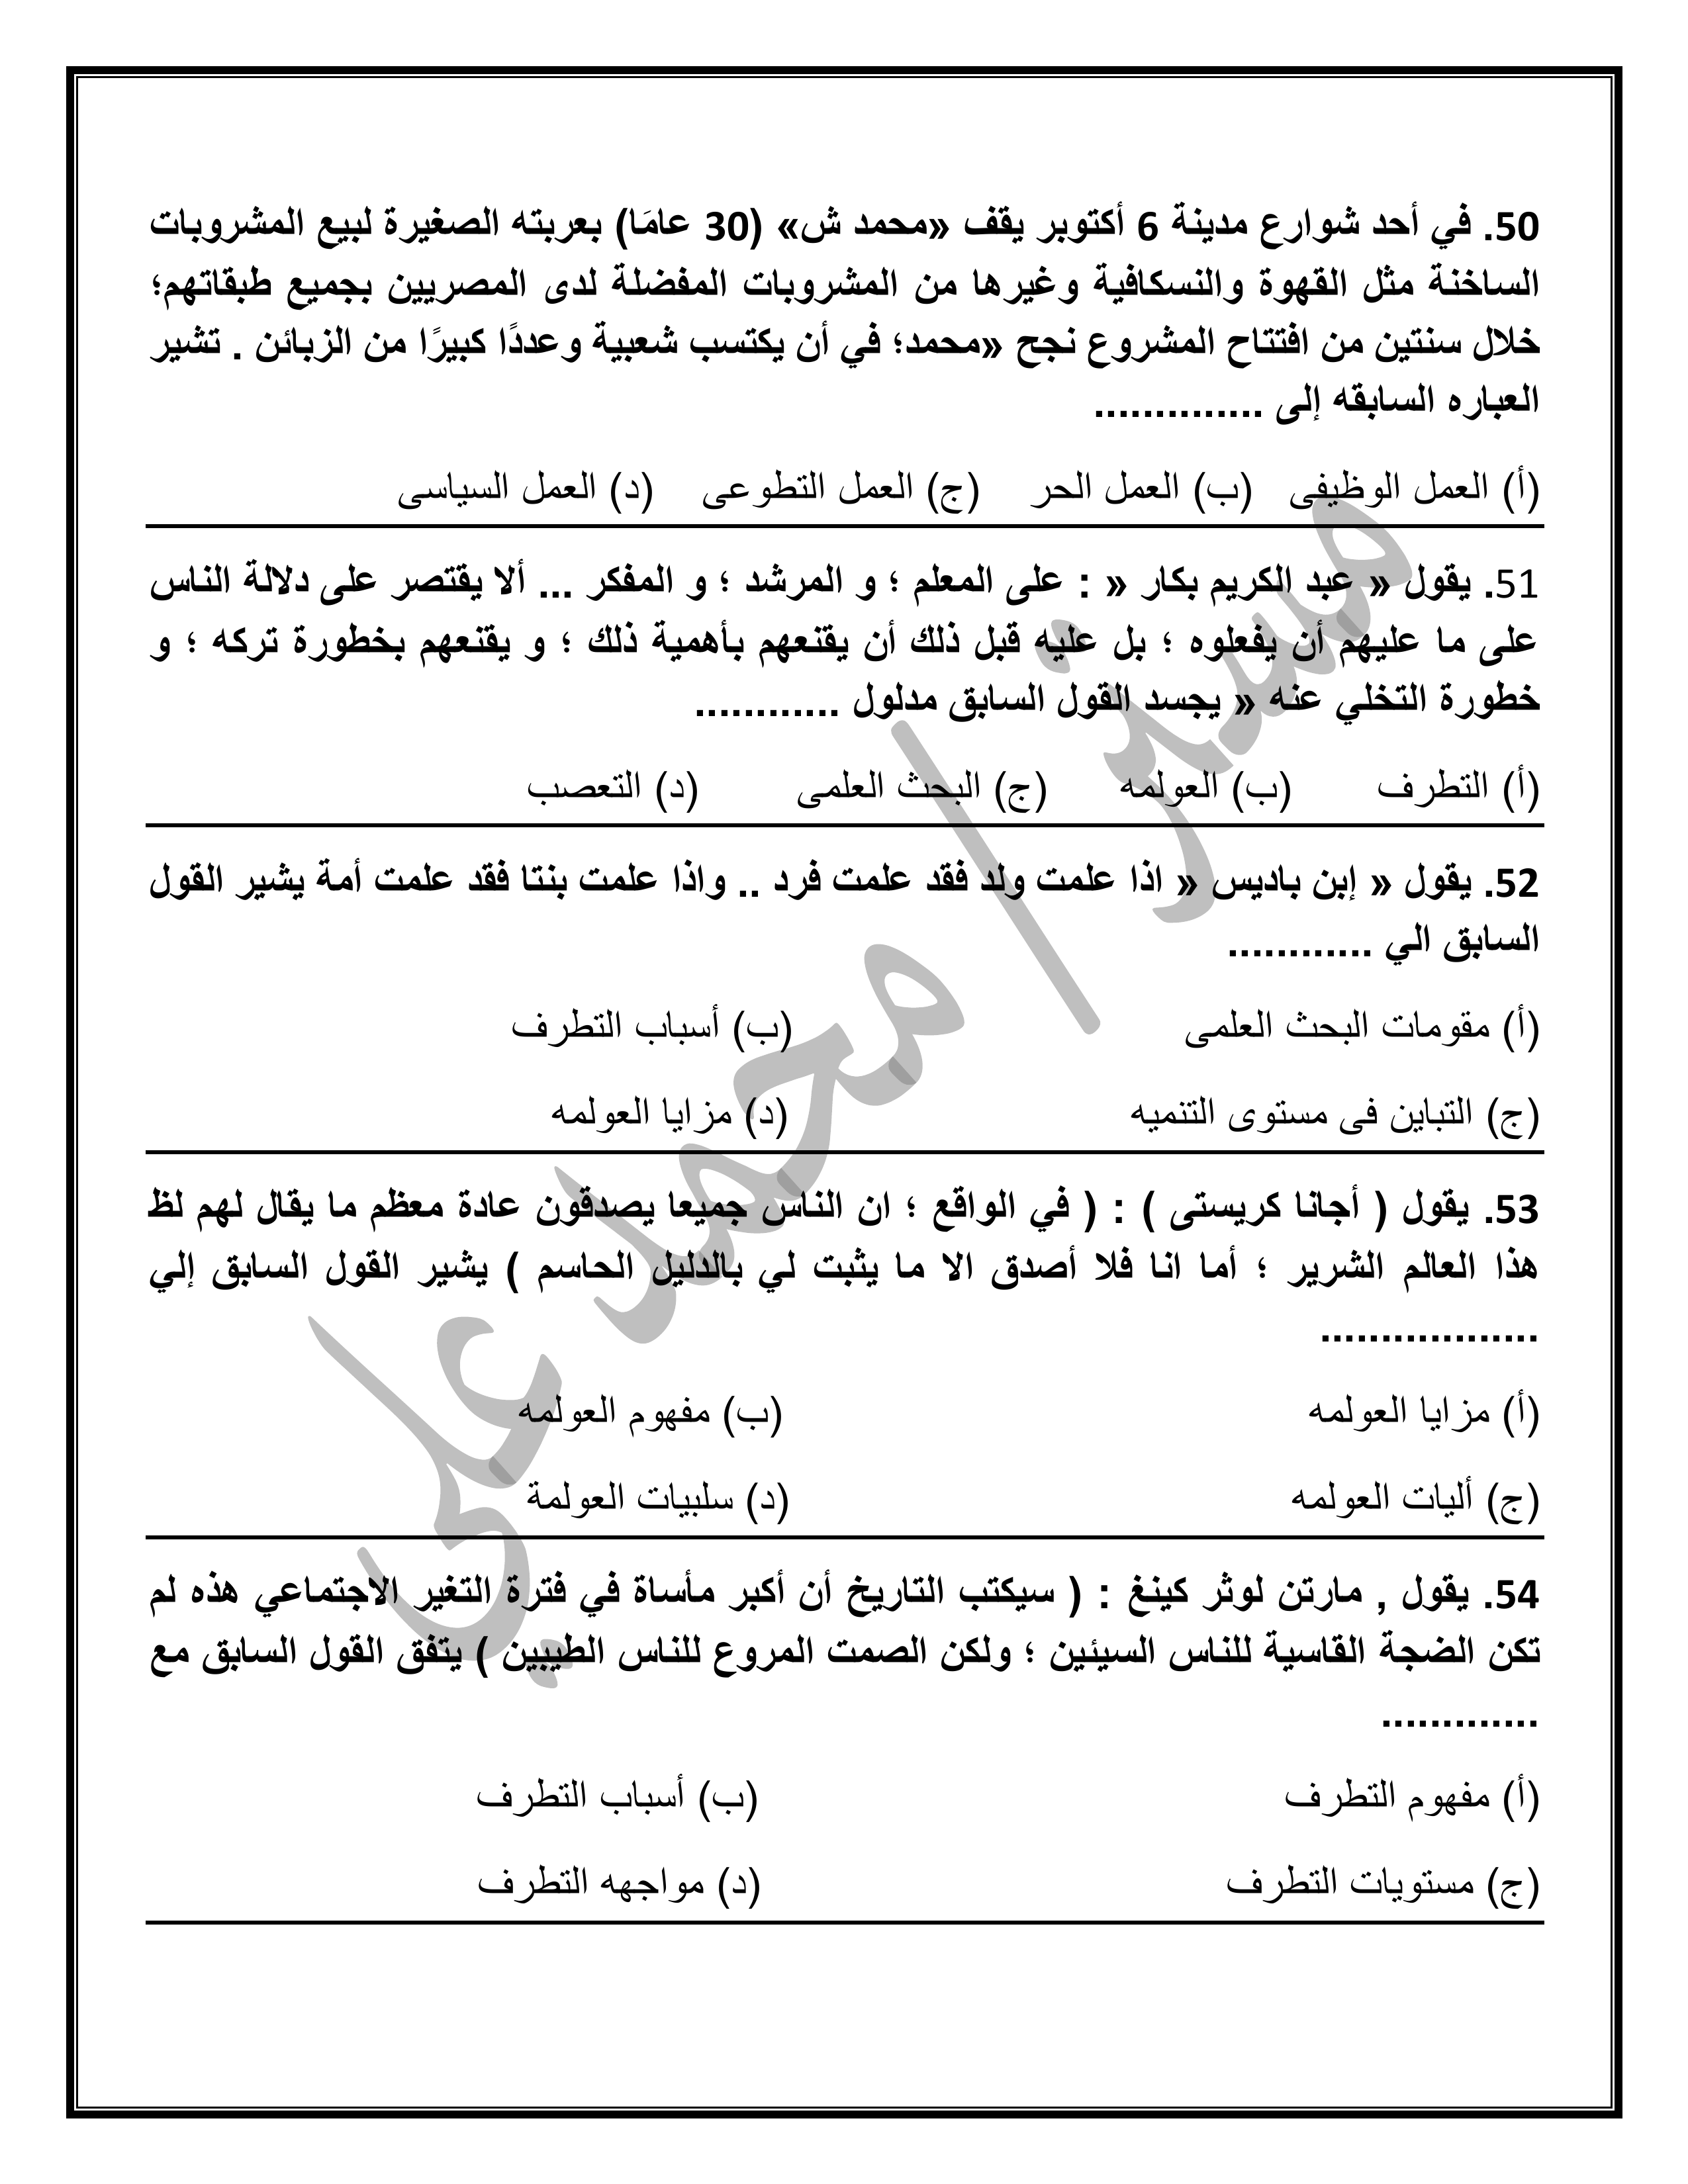 50. في أحد شوارع مدينة 6 أكتوبر يقف «محمد ش» (30 عامَا) بعربته الصغيرة لبيع المشروبات
الساخنة مثل القهوة والنسكافية وغيرها من المشروبات المفضلة لدى المصريين بجميع طبقاتهم؛
خلال سنتين من افتتاح المشروع نجح «محمد؛ في أن يكتسب شعبية وعددًا كبيرًا من الزبائن . تشير
العباره السابقه إلى ..............
(أ) العمل الوظيفى (ب) العمل الحر (ج) العمل التطوعى (د) العمل السياسى
51. يقول « عبد الكريم بكار « : على المعلم ؛ و المرشد ؛ و المفكر ... ألا يقتصر على دلالة الناس
على ما عليهم أن يفعلوه ؛ بل عليه قبل ذلك أن يقنعهم بأهمية ذلك ؛ و يقنعهم بخطورة تركه ؛ و
خطورة التخلي عنه « يجسد القول السابق مدلول ............
(أ) التطرف (ب) العولمه (ج) البحث العلمى (د) التعصب
52. يقول « إبن باديس « اذا علمت ولد فقد علمت فرد .. واذا علمت بنتا فقد علمت أمة يشير القول
السابق الي ............
(أ) مقومات البحث العلمى (ب) أسباب التطرف
(ج) التباين فى مستوى التنميه (د) مزايا العولمه
53. يقول ( أجانا كريستى ) : ( في الواقع ؛ ان الناس جميعا يصدقون عادة معظم ما يقال لهم لظ
هذا العالم الشرير ؛ أما انا فلا أصدق الا ما يثبت لي بالدليل الحاسم ) يشير القول السابق إلي
..................
(أ) مزايا العولمه (ب) مفهوم العولمه
(ج) أليات العولمه (د) سلبيات العولمة
54. يقول , مارتن لوثر كينغ : ( سيكتب التاريخ أن أكبر مأساة في فترة التغير الاجتماعي هذه لم
تكن الضجة القاسية للناس السيئين ؛ ولكن الصمت المروع للناس الطيبين ) يتفق القول السابق مع
.............
(أ) مفهوم التطرف (ب) أسباب التطرف
(ج) مستويات التطرف (د) مواجهه التطرف
مستر/محمد علي